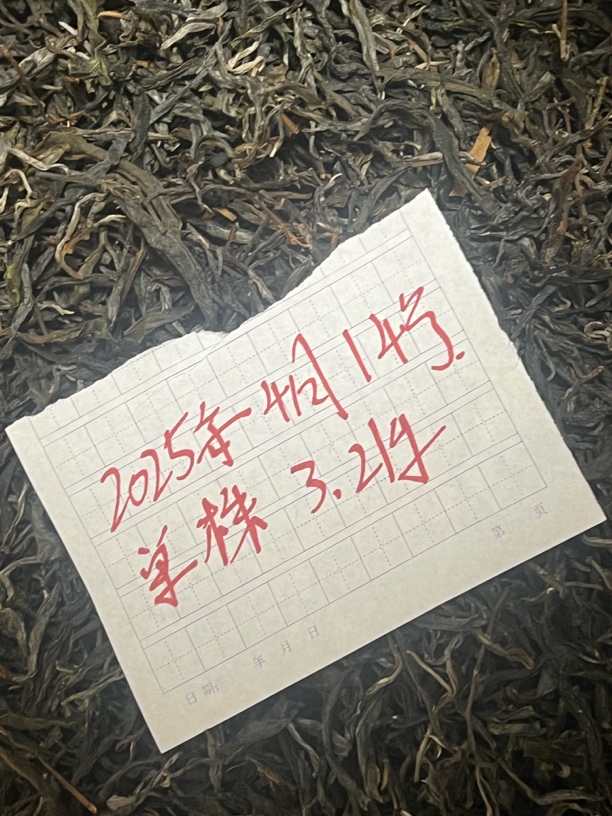 2025年4月14号.
单株 3.2件
第 页
日期: 年 月 日